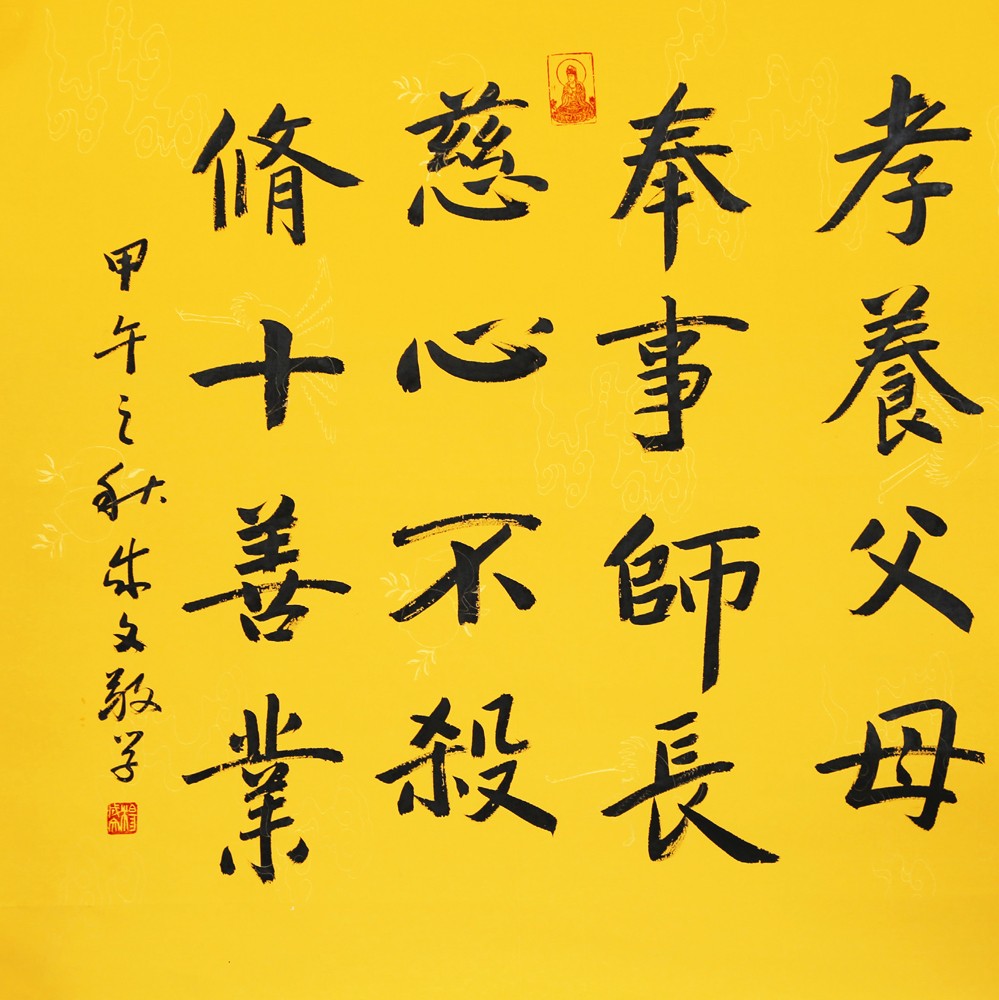 孝養父母
奉事師長
慈心不殺
脩十善業
甲午之秋成文敬书